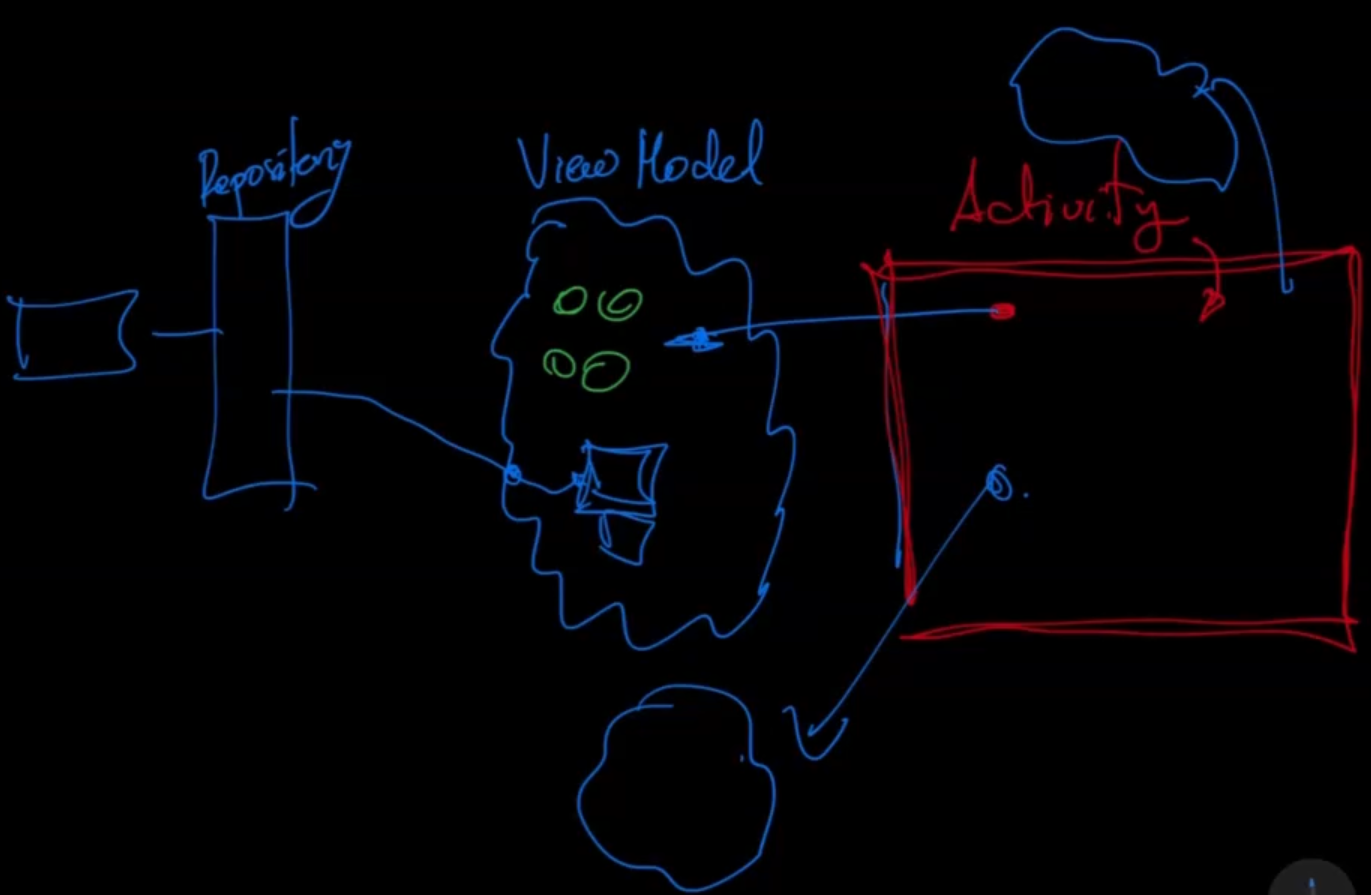 Repository
View Model
Activity